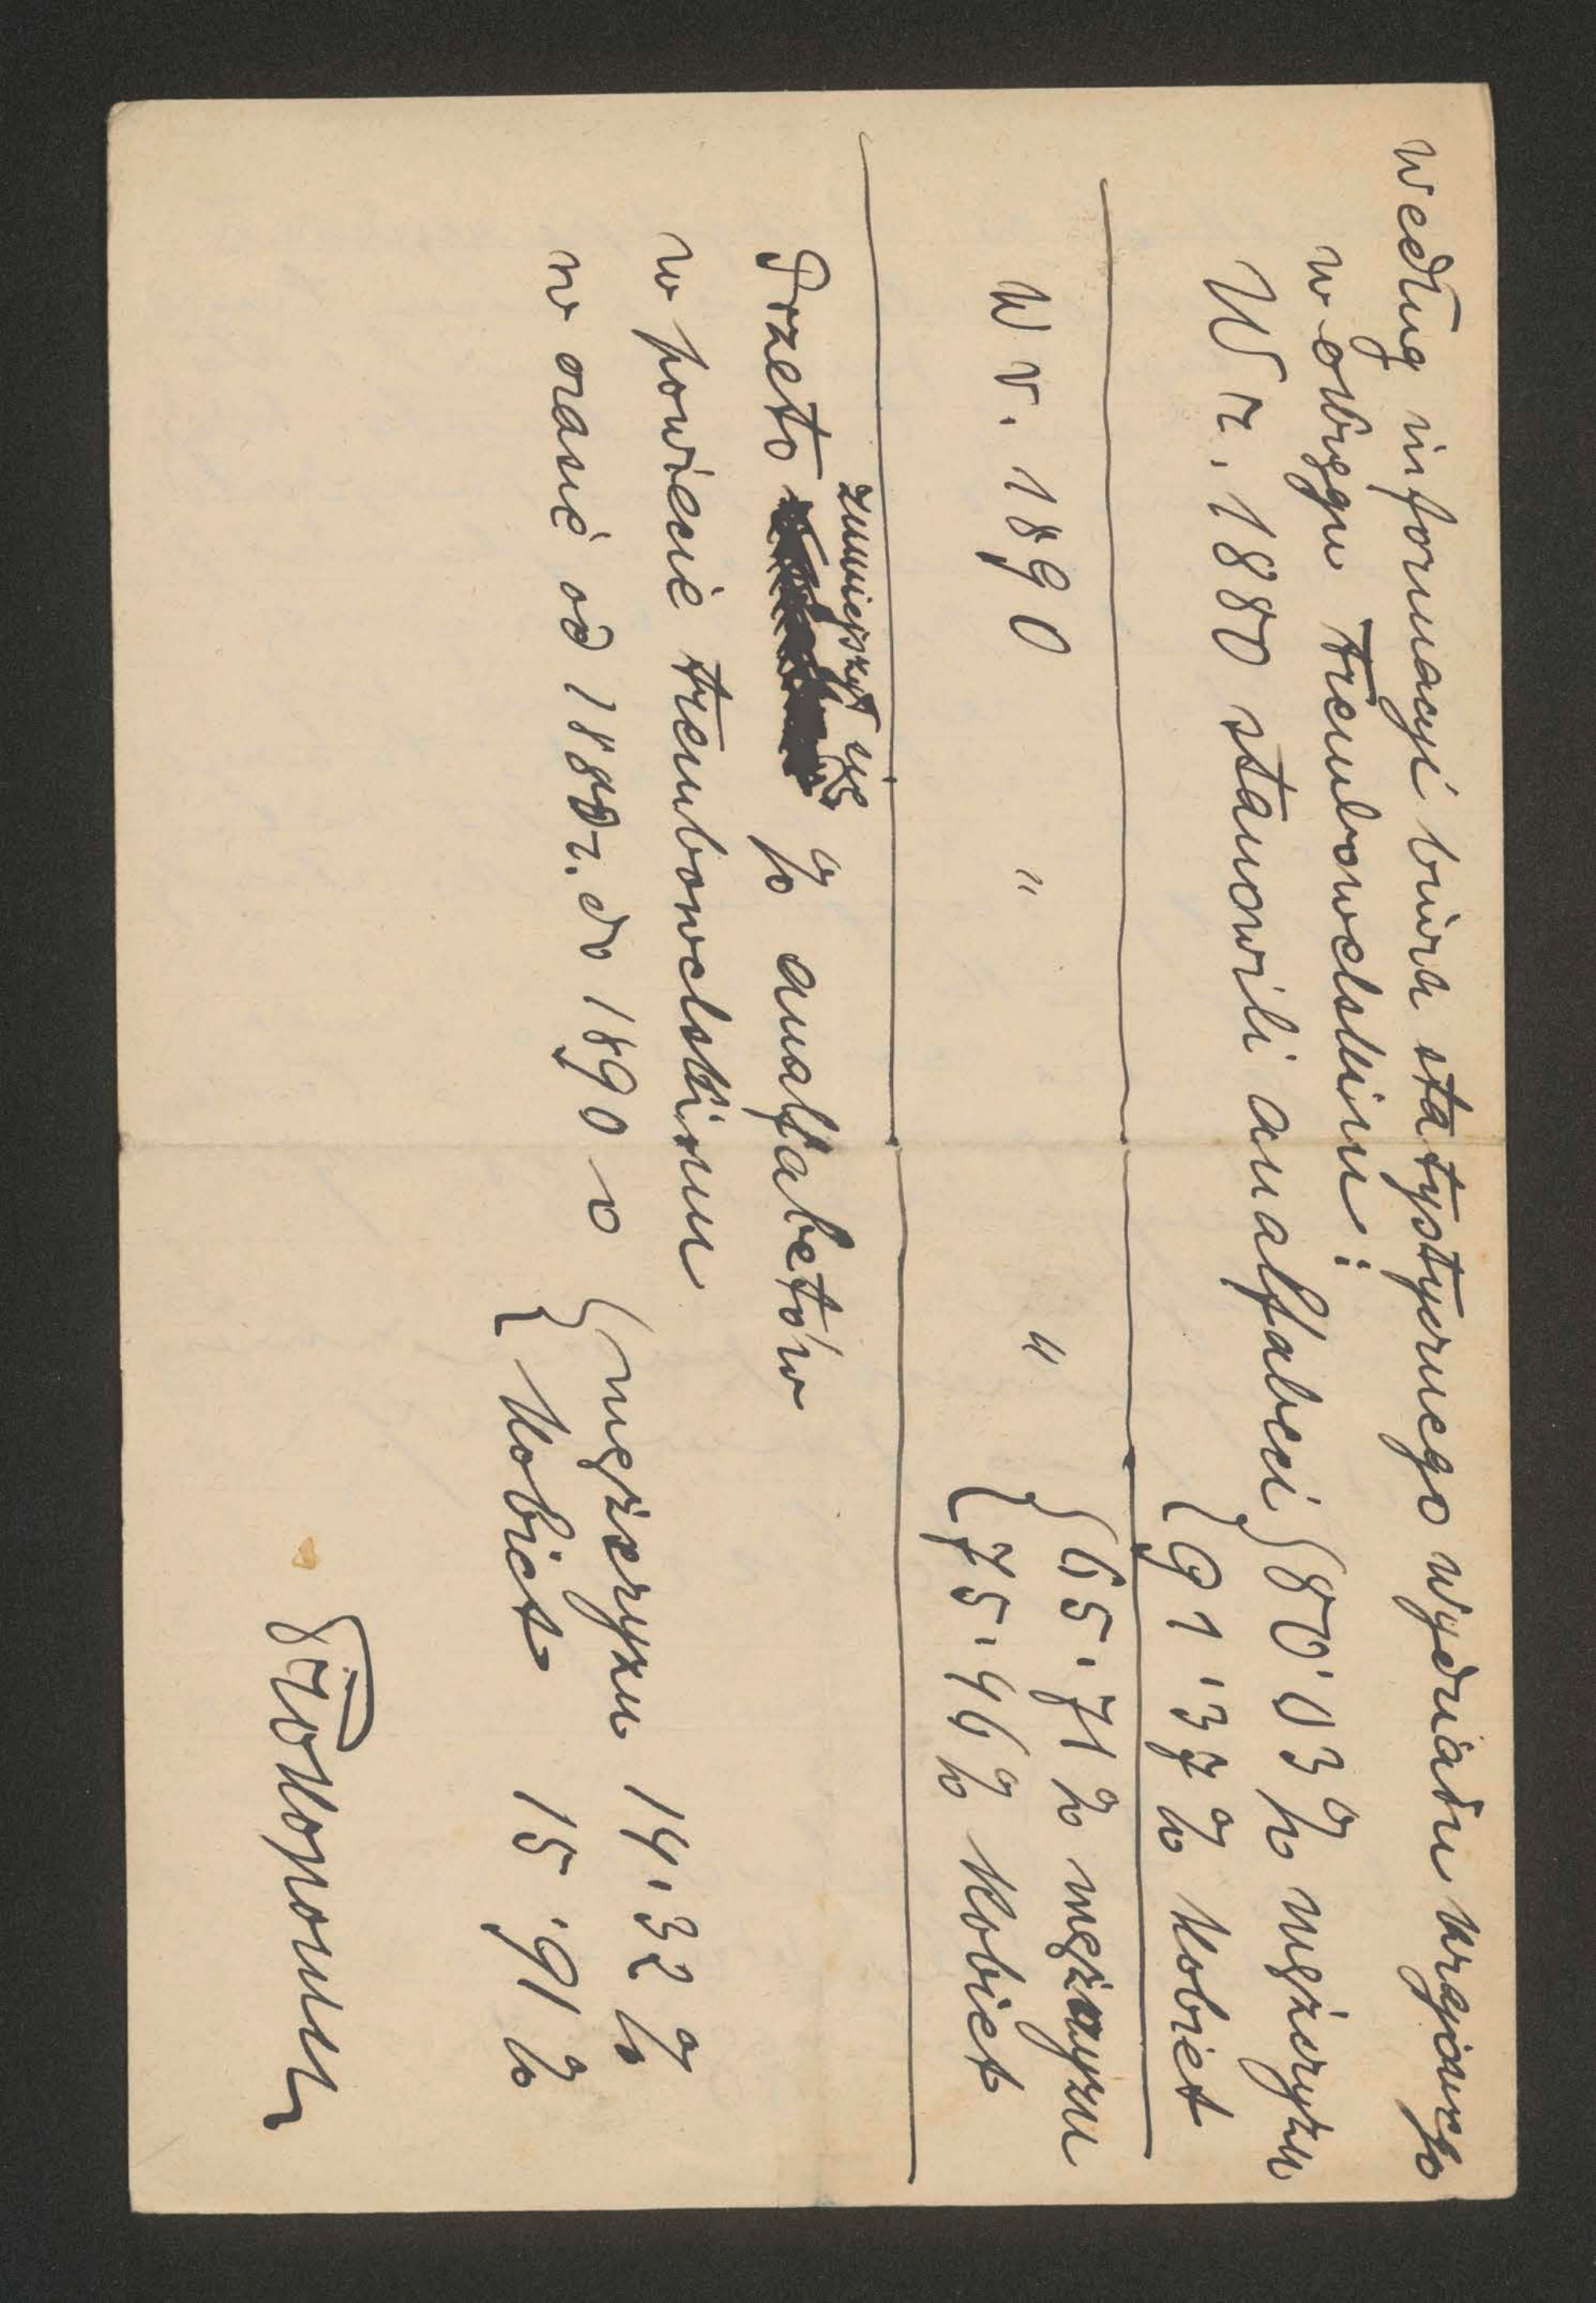 według informacyi biura statystycznego wydziału krajowego
w okręgu trembowelskim:
W r. 1880 stanowili analfabeci { 80·03 % mężczyzn
{ 91·37 % kobiet
W r. 1890 " " { 65·71 % mężczyzn
{ 75·46 % kobiet
Przeto zmniejszył się % analfabetów
w powiecie trembowelskim
w czasie od 1880 r. do 1890 o { mężczyzn 14·32 %
{ kobiet 15·91 %